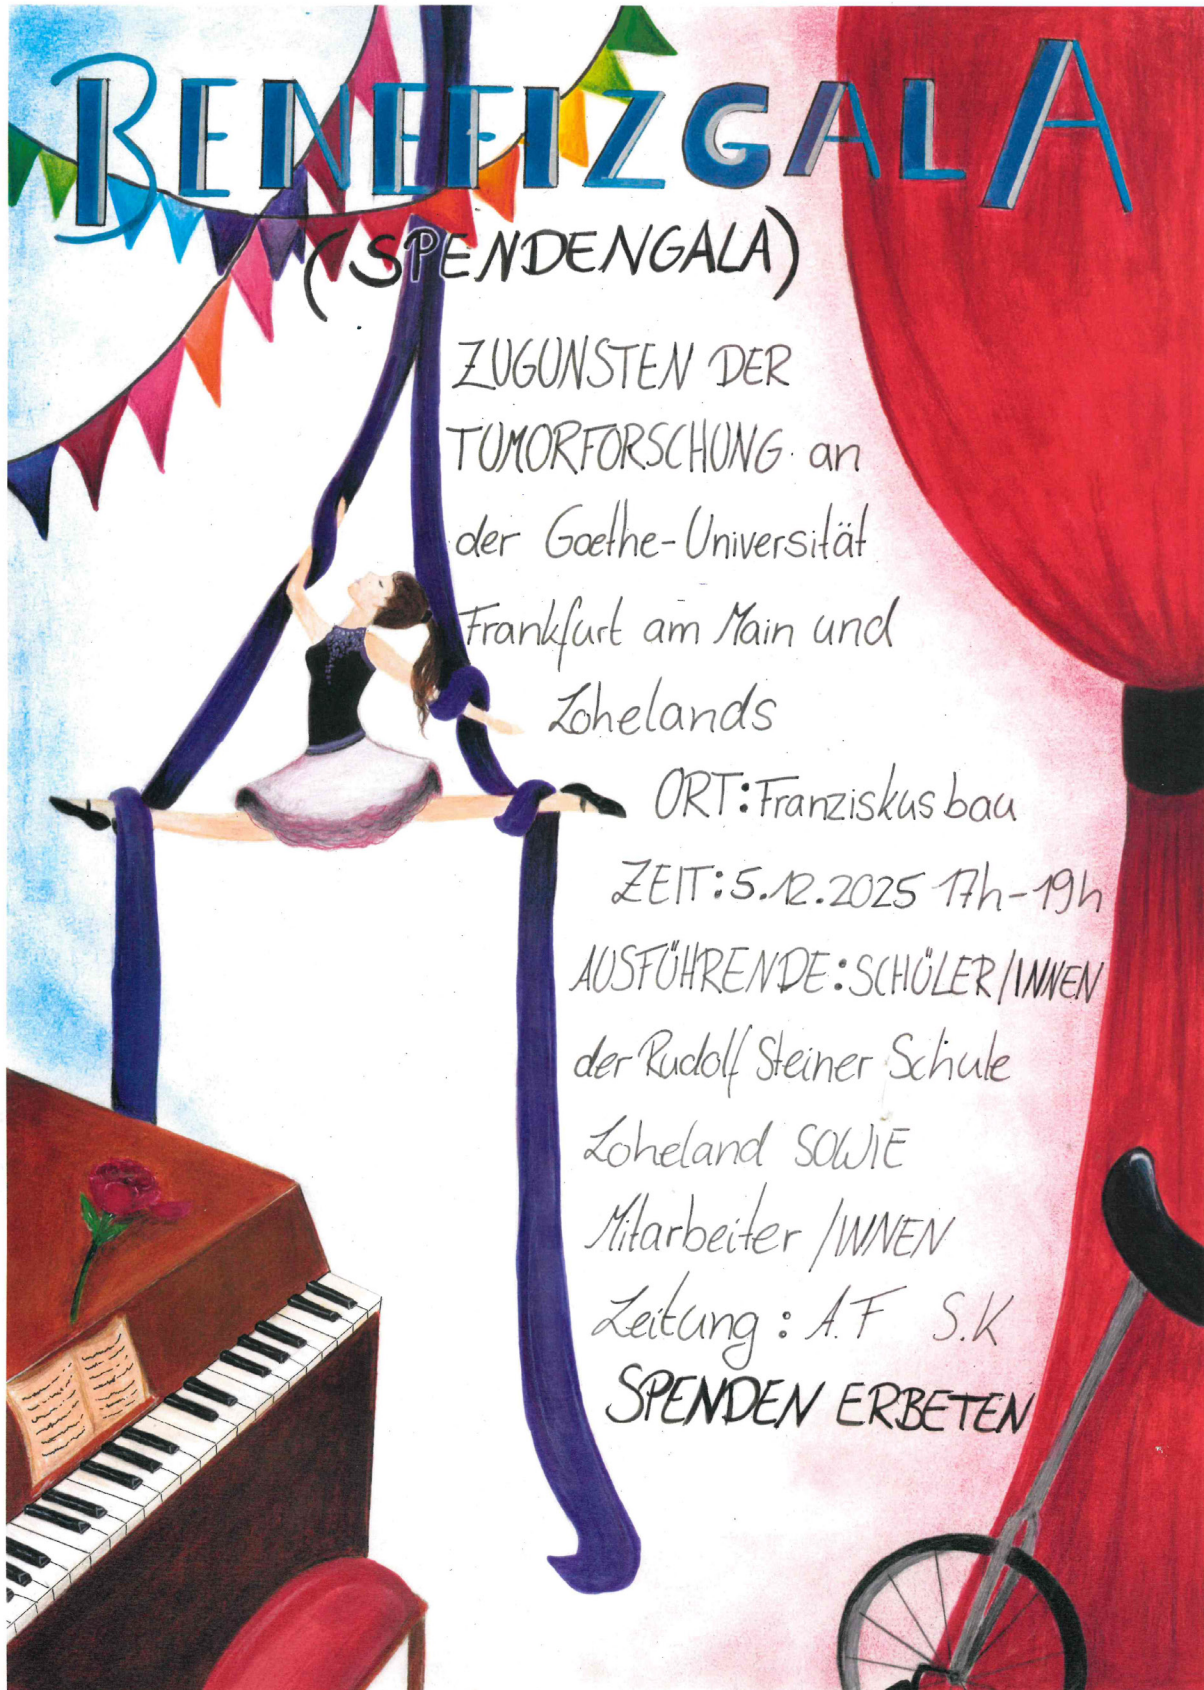 BENEFIZGALA
(SPENDENGALA)
ZUGUNSTEN DER
TUMORFORSCHUNG an
der Goethe-Universität
Frankfurt am Main und
Lohelands
ORT: Franziskusbau
ZEIT: 5.12.2025 17h-19h
AUSFÜHRENDE: SCHÜLER/INNEN
der Rudolf Steiner Schule
Loheland SOWIE
Mitarbeiter/INNEN
Leitung: A.F S.K
SPENDEN ERBETEN